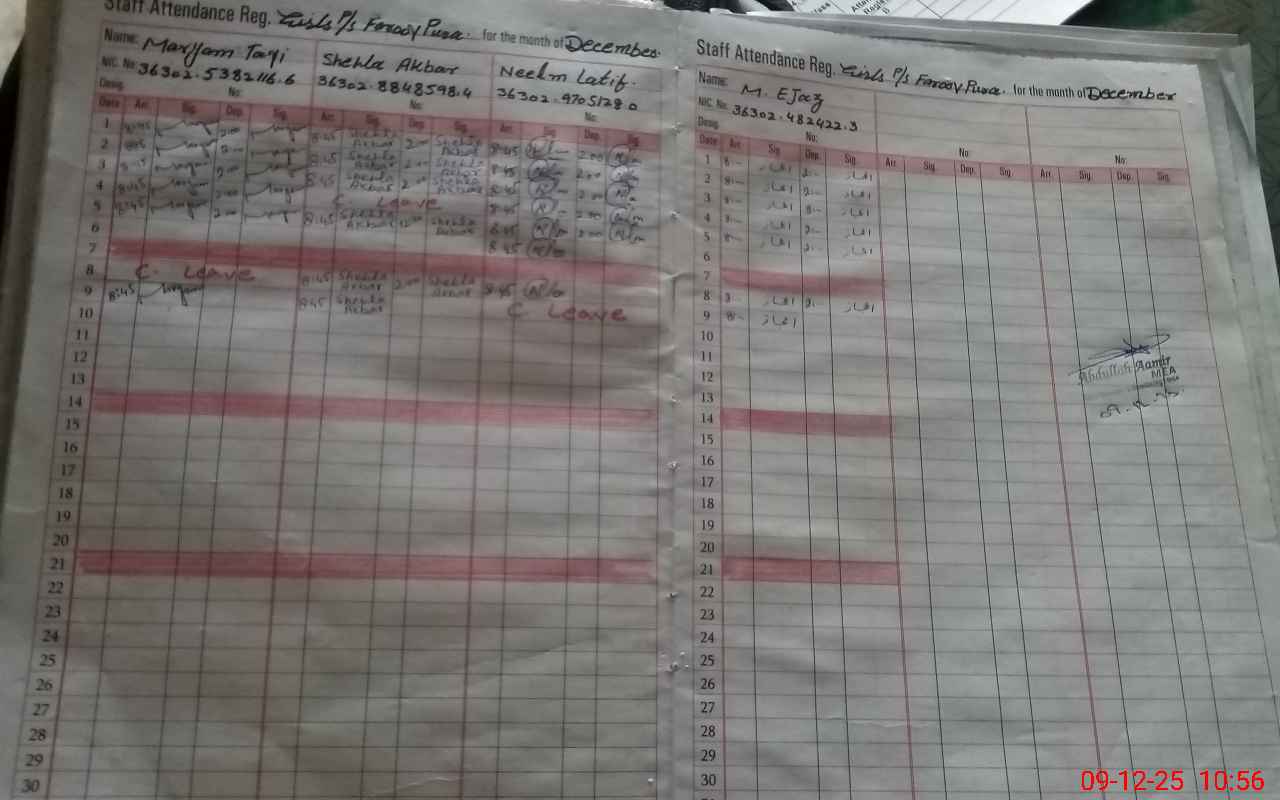 Staff Attendance Reg. Girls P/s Farooy Pura. for the month of December.
Name: Maryam Taqi Shehla Akbar Neelm Latif.
NIC. No. 36302.5382116.6 36302.8848598.4 36302.9705128.0
Desig. No: No: No:
Date Arr. Sig. Dep. Sig. Arr. Sig. Dep. Sig. Arr. Sig. Dep. Sig.
1 8:45 2:00 8:45 Shehla Akbar 2:00 Shehla Akbar 8:45 2:00
2 8:45 2:00 8:45 Shehla Akbar 2:00 Shehla Akbar 8:45 2:00
3 8:45 2:00 8:45 Shehla Akbar 2:00 Shehla Akbar 8:45 2:00
4 8:45 2:00 C. Leave 8:45 2:00
5 8:45 2:00 8:45 Shehla Akbar Shehla Akbar 8:45 2:00
6 8:45
7
8 C. Leave 8:45 Shehla Akbar 2:00 Shehla Akbar 8:45
9 8:45 8:45 Shehla Akbar C Leave
10
11
12
13
14
15
16
17
18
19
20
21
22
23
24
25
26
27
28
29
30
Staff Attendance Reg. Girls P/s Farooy Pura. for the month of December
Name: M. Ejaz
NIC. No. 36302.482422.3
Desig. No: No: No:
Date Arr. Sig. Dep. Sig. Arr. Sig. Dep. Sig. Arr. Sig. Dep. Sig.
1 8- اعجاز 2- اعجاز
2 8- اعجاز 2- اعجاز
3 8- اعجاز اعجاز
4 8- اعجاز 2- اعجاز
5 8- اعجاز 2- اعجاز
6
7
8 8- اعجاز 2- اعجاز
9 8- اعجاز
10
11
12
13
14
15
16
17
18
19
20
21
22
23
24
25
26
27
28
29
30
Abdullah Aamir
MEA
09-12-25
09-12-25 10:56